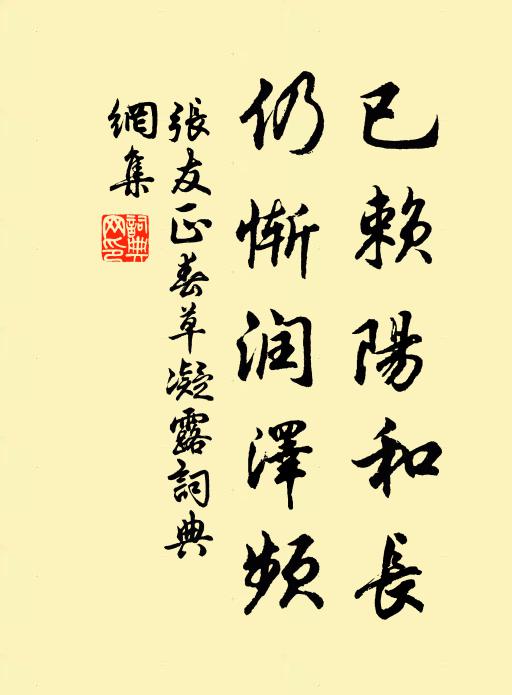 已賴陽和長
仍慚潤澤頻
張友正春草凝露詞典
網集
詞典
网印